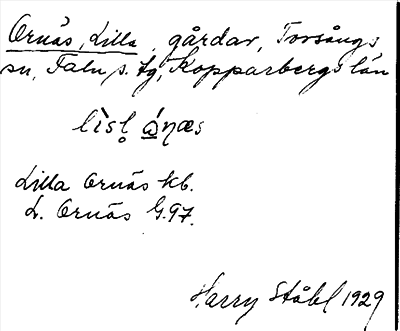 Ornäs, Lilla, gårdar, Torsångs
sn, Falu s. tg, Kopparbergs län
lìsḷ ǻnæs
Lilla Ornäs kb.
L. Ornäs G.97.
Harry Ståhl 1929